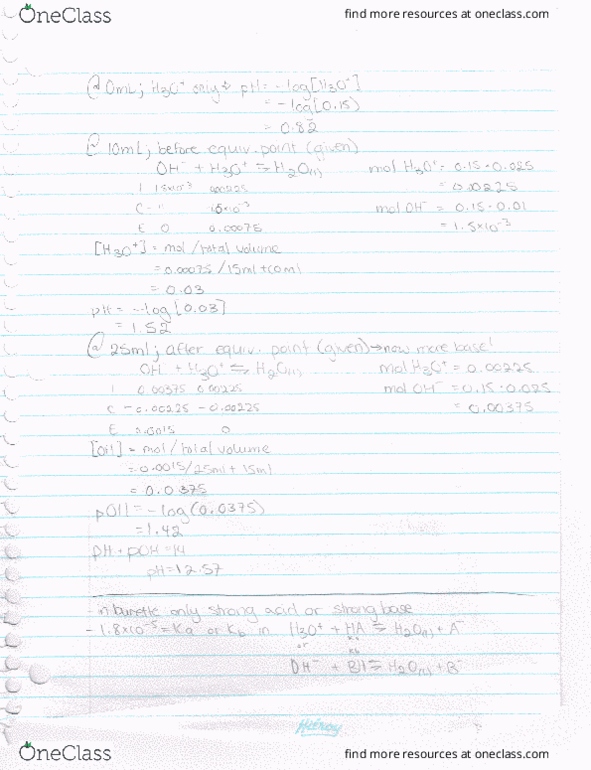 OneClass find more resources at oneclass.com
@ 0mL; H₃O⁺ only ∴ pH = -log[H₃O⁺]
= -log[0.15)
= 0.82
@ 10mL; before equiv. point (given)
OH⁻ + H₃O⁺ ⇌ H₂O(l) mol H₃O⁺ = 0.15·0.025
I 1.5x10⁻³ 0.00225 = 0.00225
C - " 1.5x10⁻³ mol OH⁻ = 0.15·0.01
E 0 0.00075 = 1.5x10⁻³
[H₃O⁺] = mol/total volume
= 0.00075/15ml+10ml
= 0.03
pH = -log[0.03]
= 1.52
@ 25ml; after equiv. point (given)→now more base!
OH⁻ + H₃O⁺ ⇌ H₂O(l) mol H₃O⁺ = 0.00225
I 0.00375 0.00225 mol OH⁻ = 0.15·0.025
C -0.00225 -0.00225 = 0.00375
E 0.0015 0
[OH] = mol/total volume
= 0.0015/25ml + 15ml
= 0.0375
pOH = -log(0.0375)
= 1.42
pH + pOH = 14
pH = 12.57
- in burette only strong acid or strong base
- 1.8x10⁻⁵ = Ka or Kb in H₃O⁺ + HA ⇌ H₂O(l) + A⁻
or Ka
Kb
OH⁻ + BH ⇌ H₂O(l) + B⁻
Hilroy
OneClass find more resources at oneclass.com